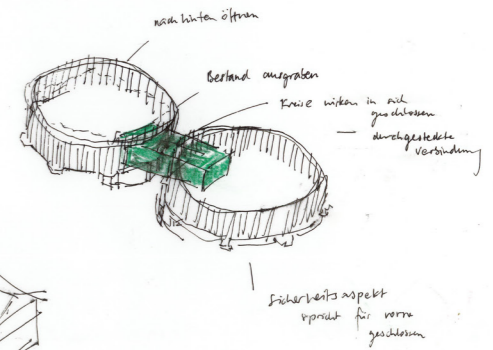 nach hinten öffnen
Bestand ausgraben
Kreise wirken in sich
geschlossen
— durchgesteckte
Verbindung
Sicherheitsaspekt
spricht für vorne
geschlossen